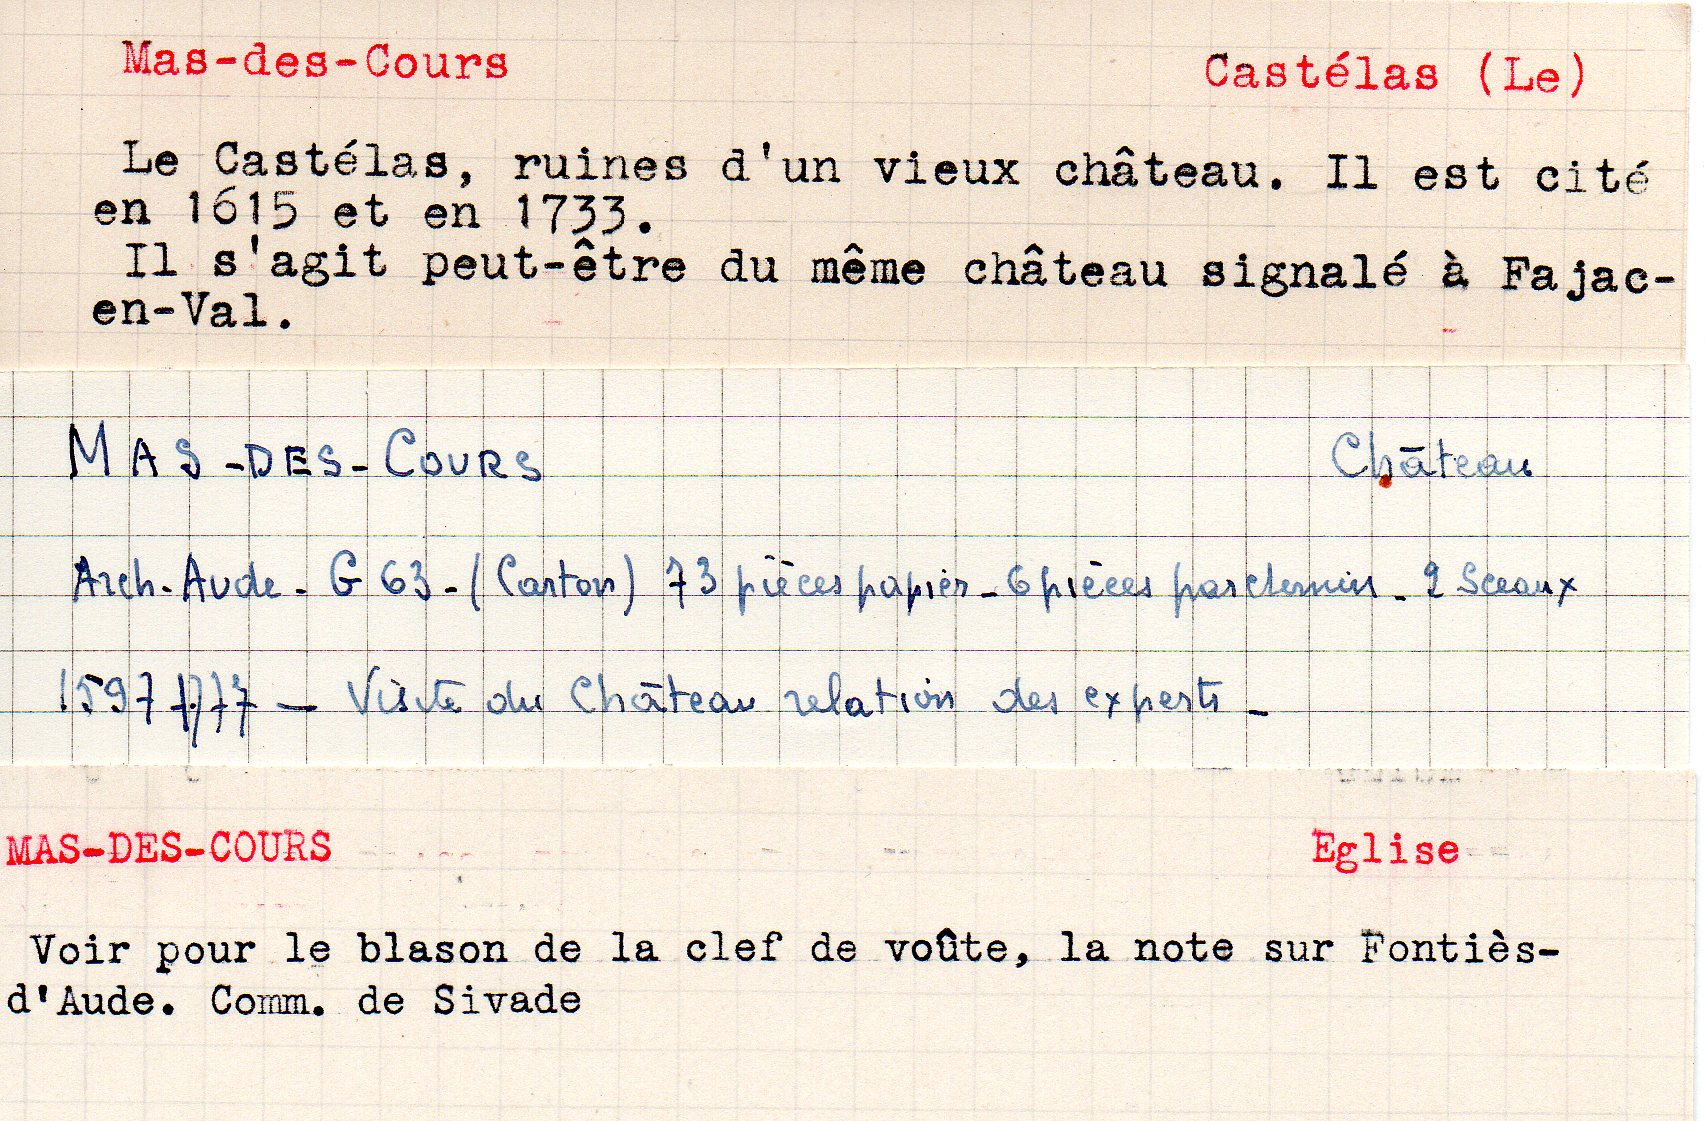 Mas-des-Cours Castélas (Le)
Le Castélas, ruines d'un vieux château. Il est cité
en 1615 et en 1733.
Il s'agit peut-être du même château signalé à Fajac-
en-Val.
MAS-DES-COURS Château
Arch. Aude - G 63 - (Carton) 73 pièces papier - 6 pièces parchemin - 2 Sceaux
1597 — Visite du Château relation des experts -
MAS-DES-COURS Eglise
Voir pour le blason de la clef de voûte, la note sur Fontiès-
d'Aude. Comm. de Sivade